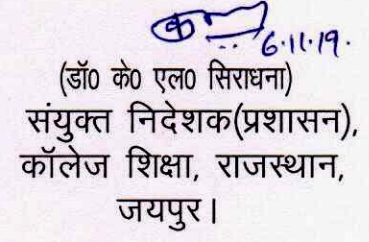 6.11.19.
(डॉ0 के0 एल0 सिराधना)
संयुक्त निदेशक(प्रशासन),
कॉलेज शिक्षा, राजस्थान,
जयपुर।